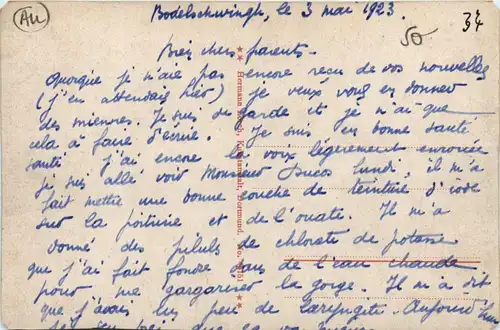 Au
50
34
Bodelschwingh, le 3 mai 1923.
Bien chers parents.
Quoique je n'aie pas encore reçu de vos nouvelles
(j'en attendais hier) je veux vous en donner
des miennes. Je suis de garde et je n'ai que
cela à faire d'écrire. Je suis en bonne santé
santé j'ai encore la voix légèrement enrouée
je suis allé voir Monsieur Ducos lundi, il m'a
fait mettre une bonne couche de teinture d'iode
sur la poitrine et de l'ouate. Il m'a
donné des pilules de chlorate de potasse
que j'ai fait fondre dans de l'eau chaude
pour me gargariser la gorge. Il m'a dit
que j'avais un peu de laryngite. Aujourd'hui
que la
Hermann Kunstanstalt, Dortmund.